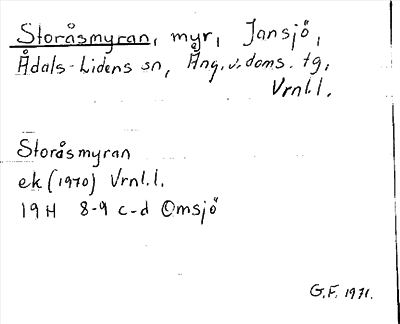 Storåsmyran, myr, Jansjö,
Ådals-Lidens sn, Ång.v.doms. tg,
Vrnl.l.
Storåsmyran
ek (1970) Vrnl.l.
19H 8-9 c-d Omsjö
G.F. 1971.